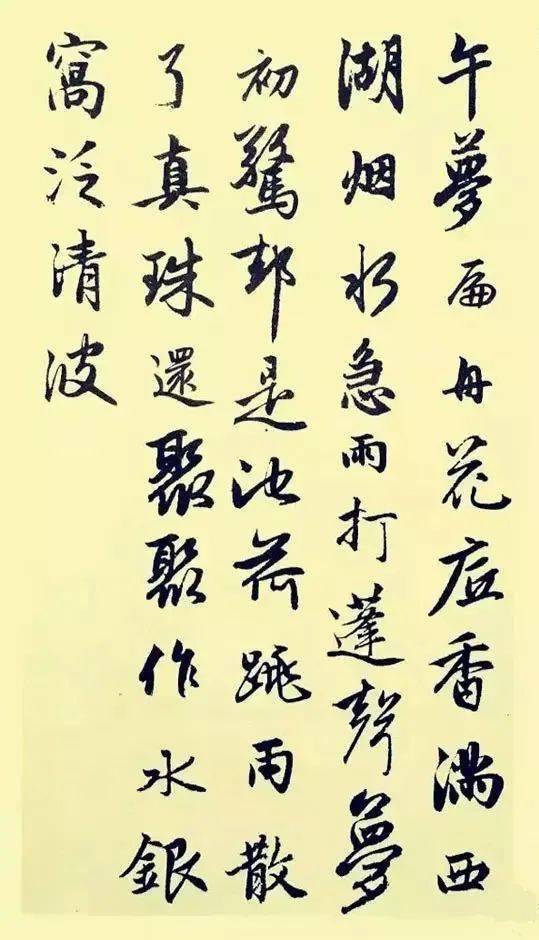 午夢扁舟花底香滿西
湖烟水急雨打蓬聲夢
初驚却是池荷跳雨散
了真珠還聚聚作水銀
窩泛清波